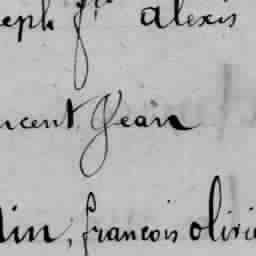 eph f.ois alexis
ncent Jean
lin, francois olivi